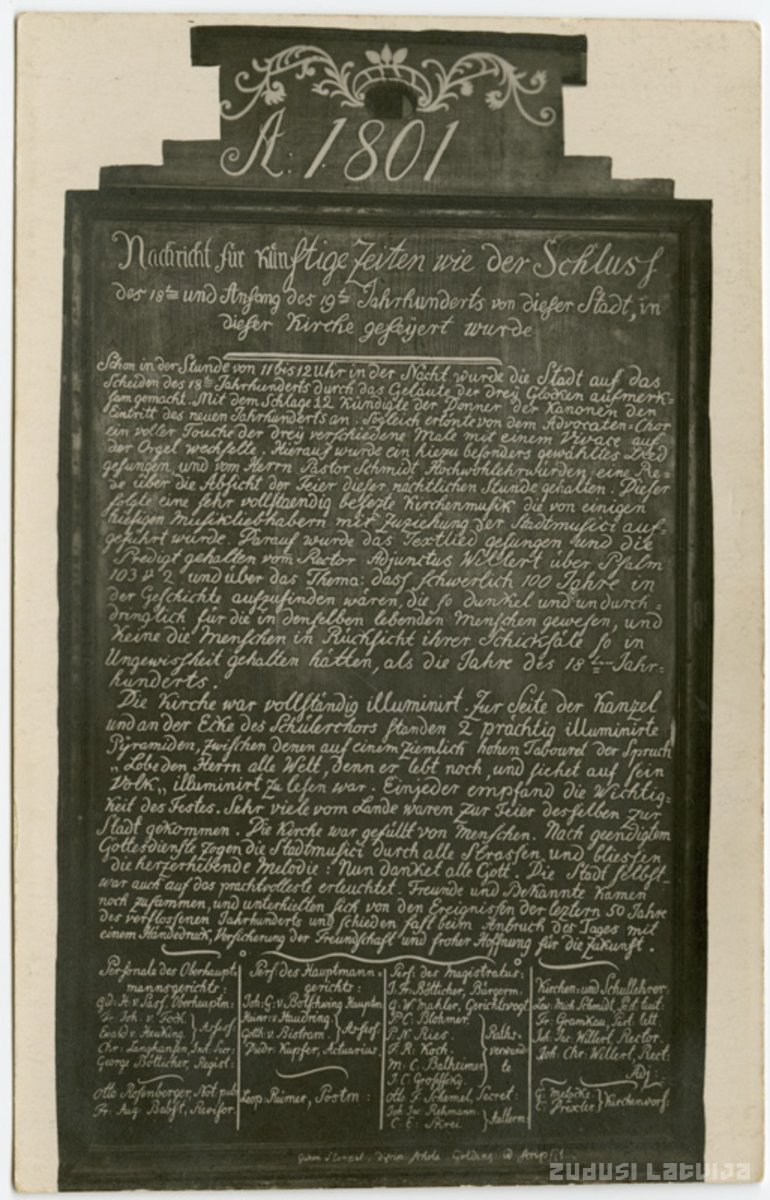 A: 1801
Nachricht für künftige Zeiten wie der Schluss
des 18ten und Anfang des 19ten Jahrhunderts von dieser Stadt, in
dieser Kirche gefeÿert wurde
Schon in der Stunde von 11 bis 12 Uhr in der Nacht wurde die Stadt auf das
Scheiden des 18ten Jahrhunderts durch das Geläute der dreÿ Glocken aufmerk-
sam gemacht. Mit dem Schlage 12 kündigte der Donner der Kanonen den
Eintritt des neuen Jahrhunderts an. Sogleich ertönte von dem Advocaten-Chor
ein voller Touche der dreÿ verschiedene Male mit einem Vivace auf
der Orgel wechselte. Hierauf wurde ein hiezu besonders gewähltes Lied
gesungen, und vom Herrn Pastor Schmidt Hochwohlehrwürden, eine Re-
de über die Absicht der Feier dieser nächtlichen Stunde gehalten. Dieser
folgte eine sehr vollstaendig besezte Kirchenmusik die von einigen
hiesigen Musikliebhabern mit Zuziehung der Stadtmusici auf-
geführt wurde. Darauf wurde das Textlied gesungen und die
Predigt gehalten vom Rector Adjunctus Willert über Psalm
103 v 2 und über das Thema: dass schwerlich 100 Jahre in
der Geschichte aufzufinden wären, die so dunkel und undurch-
dringlich für die in denselben lebenden Menschen gewesen, und
keine die Menschen in Rücksicht ihrer Schicksäle so in
Ungewissheit gehalten hätten, als die Jahre des 18ten Jahr-
hunderts.
Die Kirche war vollständig illuminirt. Zur Seite der Kanzel
und an der Ecke des Schülerchors standen 2 prächtig illuminirte
Pÿramiden, zwischen denen auf einem ziemlich hohen Tabouret der Spruch
„Lobe den Herrn alle Welt, denn er lebt noch, und siehet auf sein
Volk„ illuminirt zu lesen war. Einjeder empfand die Wichtig-
keit des Festes. Sehr viele vom Lande waren zur Feier desselben zur
Stadt gekommen. Die Kirche war gefüllt von Menschen. Nach geendigtem
Gottesdienste zogen die Stadtmusici durch alle Strassen und bliesen
die herzerhebende Melodie: Nun danket alle Gott. Die Stadt selbst
war auch auf das prachtvolleste erleuchtet. Freunde und Bekannte kamen
noch zusammen, und unterhielten sich von den Ereignissen der leztern 50 Jahre
des verflossenen Jahrhunderts und schieden fast beim Anbruch des Tages mit
einem Händedruck, Versicherung der Freundschaft und froher Hoffnung für die Zukunft.
Personale des Oberhaupt-
mannsgerichts:
v. Sass, Oberhauptm:
Fr. Joh: v Fock
Ewald v. Heuking } Assess:
Chr: Langhansen, Inst. Secr:
George Bötticher, Regist:
Otto Rosenberger, Not: pub:
Fr: Aug: Babst, Revisor.
Pers: des Hauptmann-
gerichts:
Joh: G: v Botschwing Hauptm:
Heinr: v: Haudring
Gotth: v: Bistram } Assess:
Diedr: Kupfer, Actuarius.
Leop: Reimer, Postm:
Pers: des Magistratus:
J. Fr: Bötticher, Bürgerm:
G: W: Mahler, Gerichtsvogt
P: C: Blohmer
P: N: Ries
F: R: Koch
M: C: Belheimer } Raths-
verwand-
te
Otto F: Schemel, Secret:
Joh: Jac: Riekmann
C: E: Skrei } Aelterm:
Kirchen: und Schullehrer:
Lev: Mich: Schmidt, Past. teut:
Fr: Gramkau, Past: lett.
Joh: Jac: Willert, Rector.
Joh: Chr: Willert, Rect:
Adj:
G: Metzcke
C: Drexler } Kirchenvorst:
Zudusi Latvija